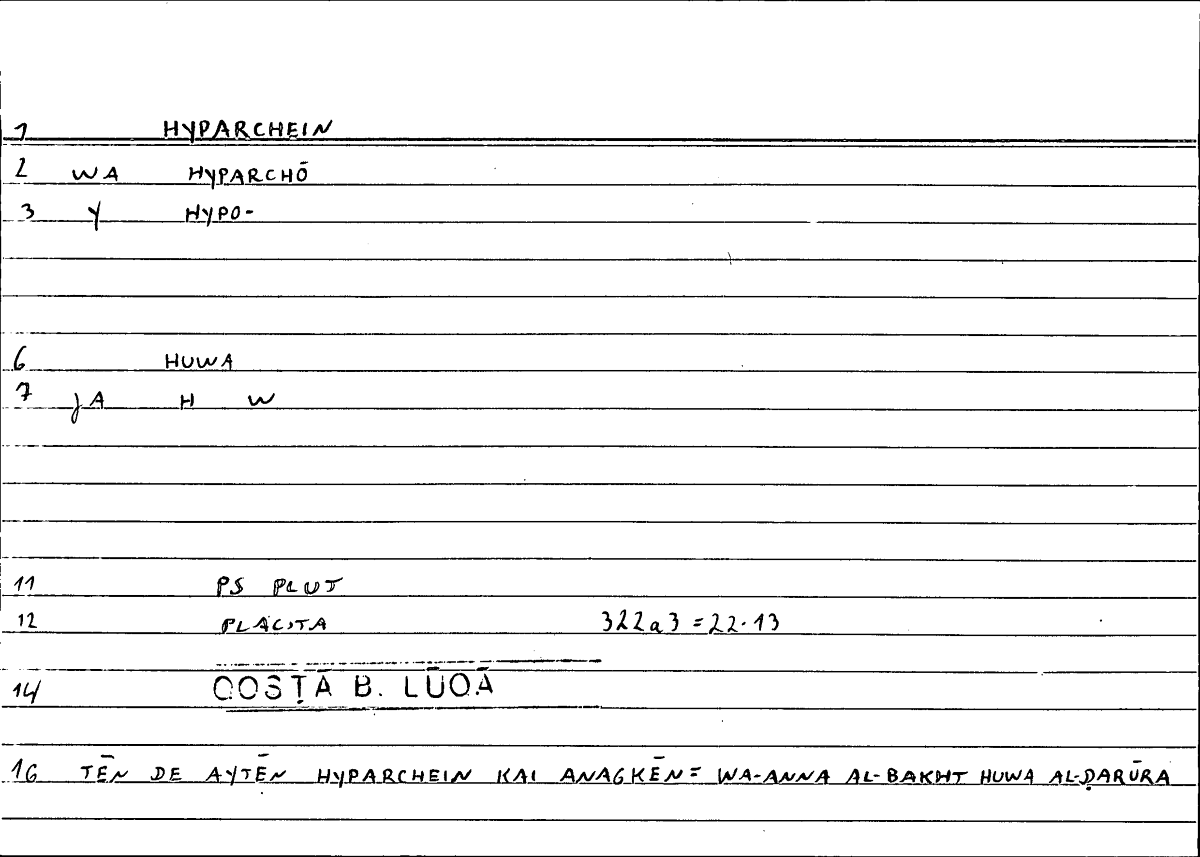 1 HYPARCHEIN
2 WA HYPARCHŌ
3 Y HYPO-
6 HUWA
7 JA H W
11 PS PLUT
12 PLACITA 322a3 = 22.13
14 QOSṬĀ B. LŪQĀ
16 TĒN DE AYTĒN HYPARCHEIN KAI ANAGKĒN = WA-ANNA AL-BAKHT HUWA AL-ḌARŪRA